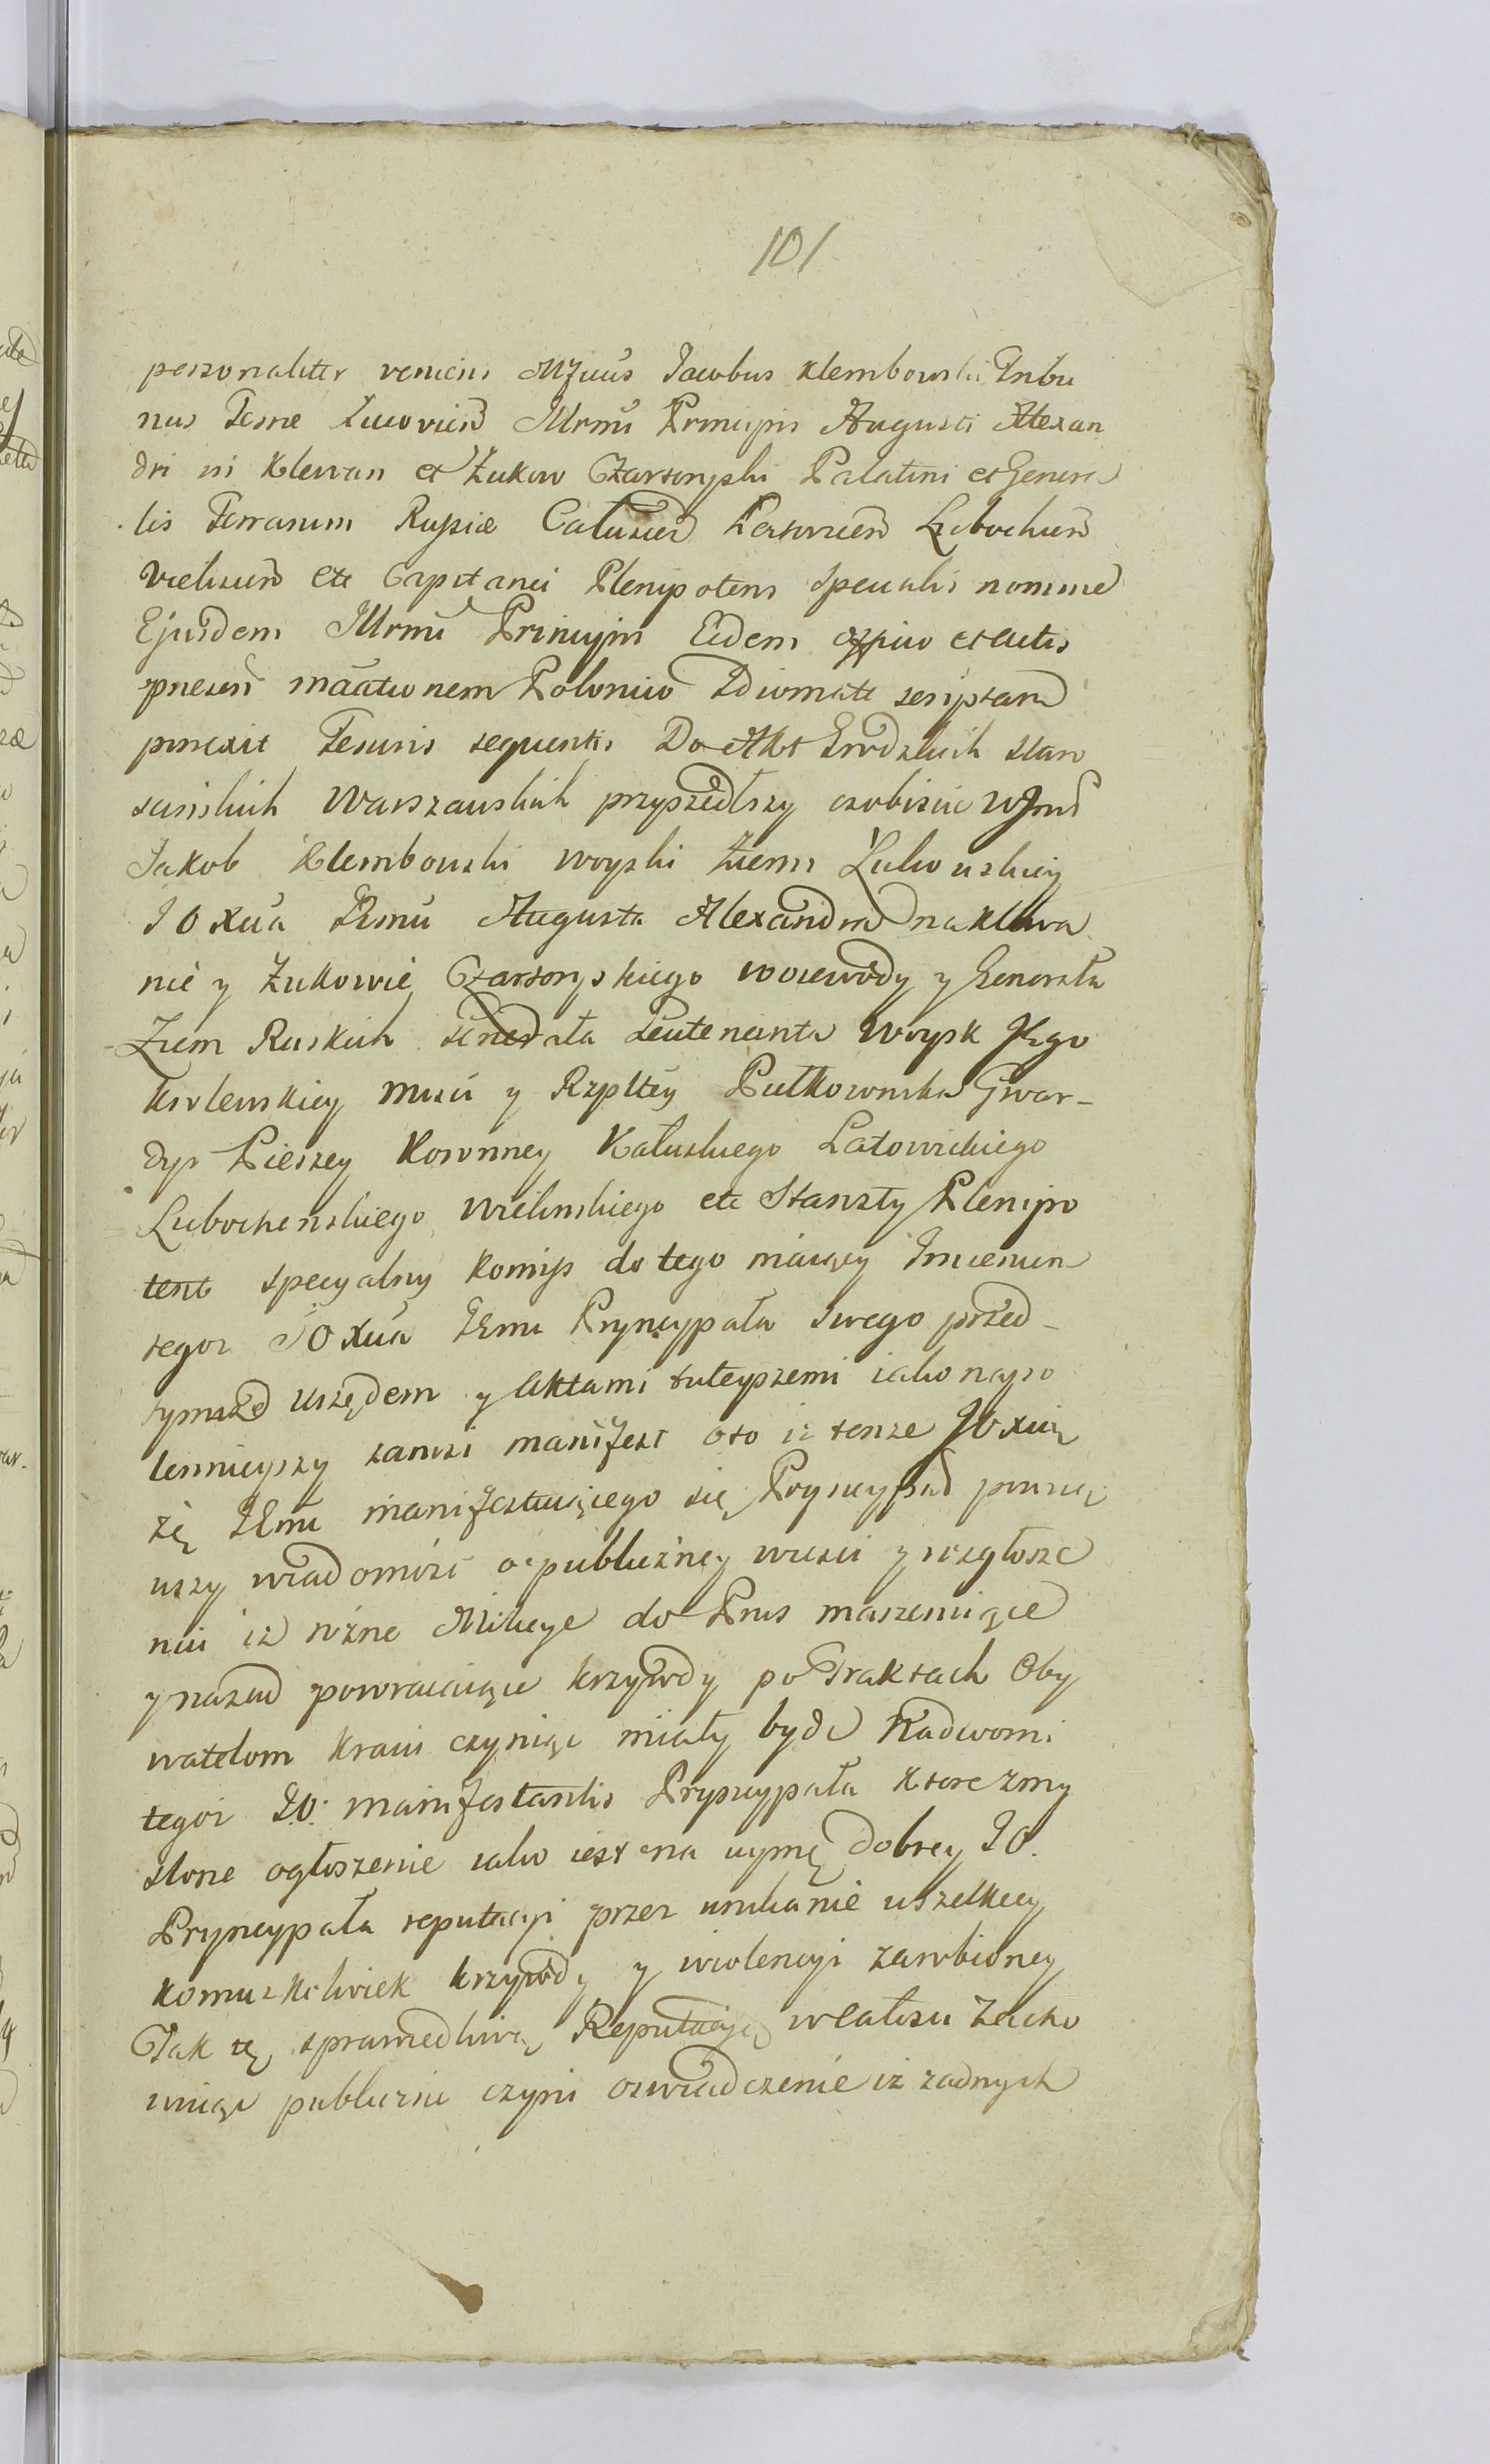 101
personaliter veniens Mfcus Jacobus Klembowski Tribu
nus Terræ Lucovien Illrmi Principis Augusti Alexan
dri in Klewan et Żukow Czartoryski Palatini et Genera
lis Terrarum Russiæ Calusien Latovicen Lubochen
Vielunen etc Capitanei Plenipotens Specialis nomine
Ejusdem Illrmi Principis Eidem officio et Actis
presen Polonico Idiomate scriptam
porrexit Tenoris sequentis Do Akt Grodzkich Staro
scinskich Warszawskich przyszedłszy osobiscie
Jakob Klembowski woyski Ziemi Łukowskiey
JO Xcia Jmci Augusta Alexandra na Klewa
nie y Żukowie Czartoryskiego woiewody y Generała
Ziem Ruskich Generała Leutenanta Woysk Jego
krolewskiey Mści y Rzpltey Pułkownika Gwar-
dyi Pieszey Koronney Kałuskiego Latowickiego
Lubochenskiego Wielunskiego etc Starosty Plenipo
tent specyalny komiss do tego maiący Imieniem
tegoż JO Xcia Jmci Pryncypała swego przed-
tymże Urzędem y Aktami tuteyszemi iako nayso
lenniejszy zanosi manifest oto iż tenże JO Xią
żę Jmć manifestuiącego się Pryncypał powzią
wszy wiadomość o publiczney wieści y rozgłosze
niu iż rożne Milicye do Prus maszeruiące
y nazad powracaiące krzywdy po Traktach Oby
watelom kraiu czyniąc miały bydz Nadworni
tegoż JO. manifestantis Pryncypała ktore zmy
slone ogłoszenie iako iest na uymę dobrey JO.
Pryncypała reputacyi przez unikanie wszelkiey
komużkolwiek krzywdy y wiolencyi zarobioney
Tak tę sprawiedliwą Reputacyą w całości zacho
wuiąc publicznie czyni oswiadczenie iż żadnych